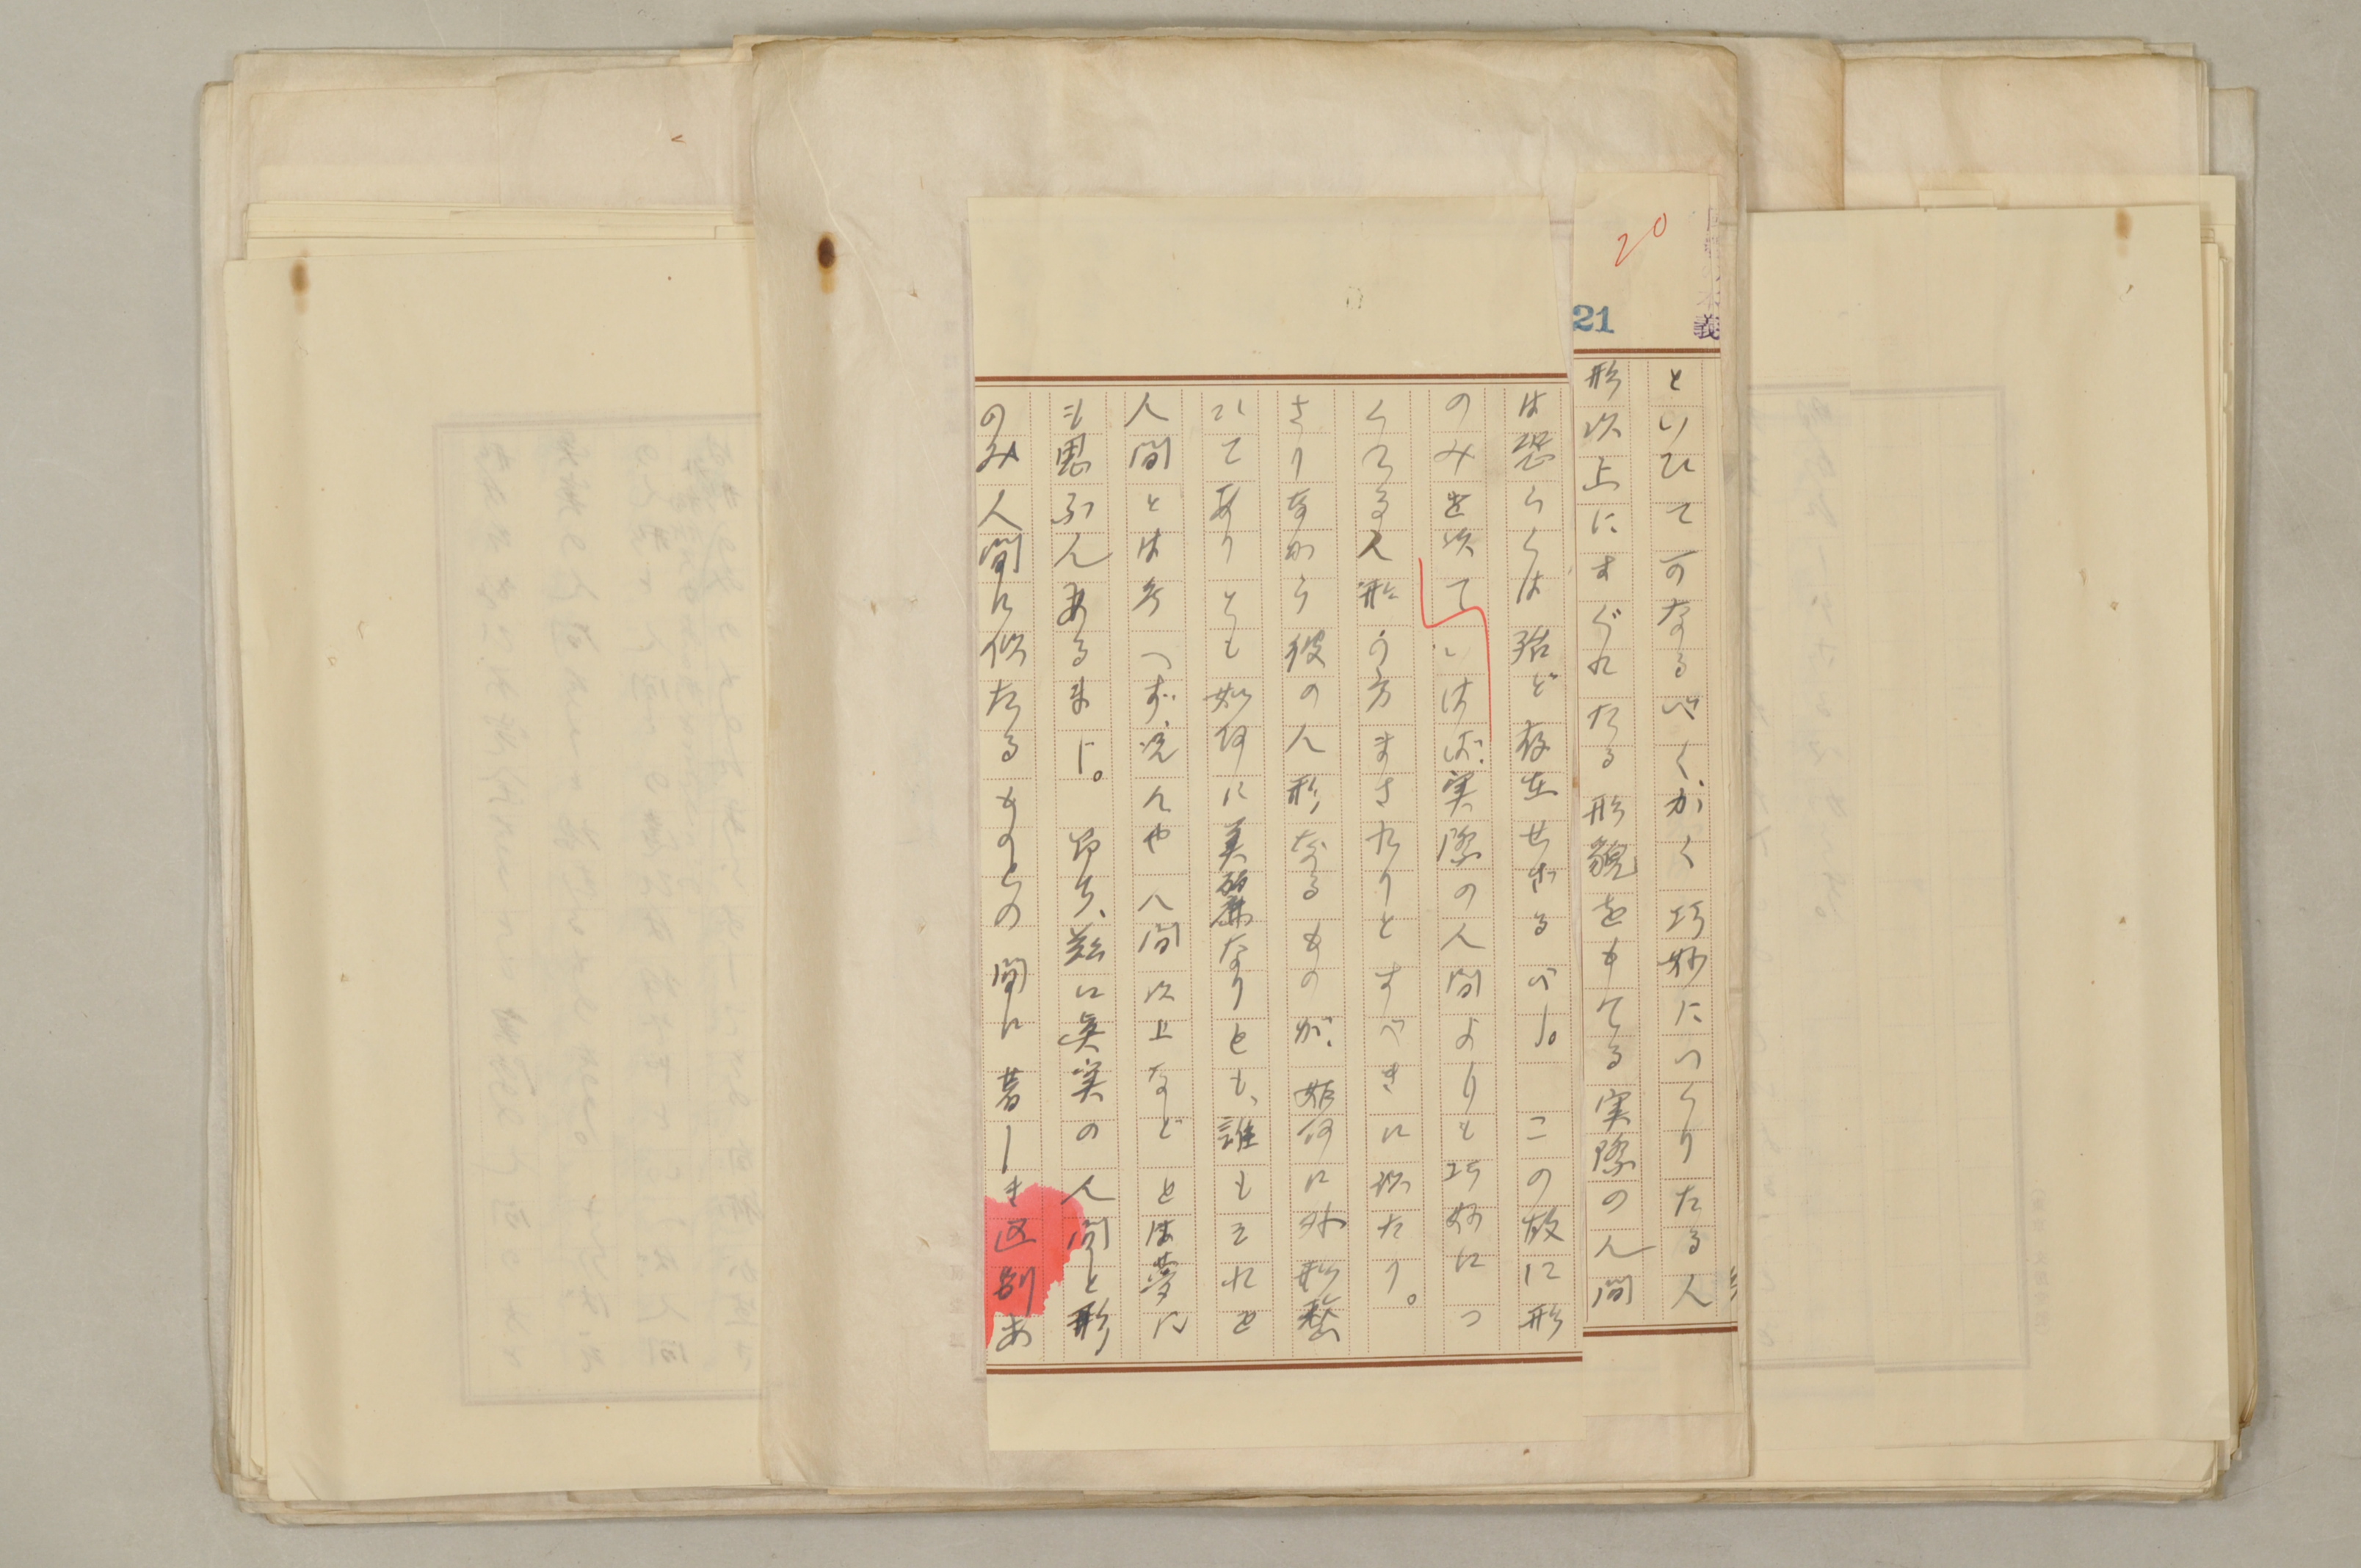 20
21
義
といひて可なるべく、かく巧妙につくりたる人
形以上にすぐれたる形貌をもてる実際の人間
は恐らくは殆ど存在せざるべし。 この故に形
のみを以ていはば、実際の人間よりも巧妙につ
くれる人形の方まされりとすべきに似たり。
さりながら彼の人形なるものが、如何に外形整
ひてありとも如何に美麗なりとも、誰もそれを
人間とは考へず、況んや人間以上などとは夢に
も思ふ人あるまじ。 即ち、茲に真実の人間と形
のみ人間に似たるものとの間に著しき区別あ